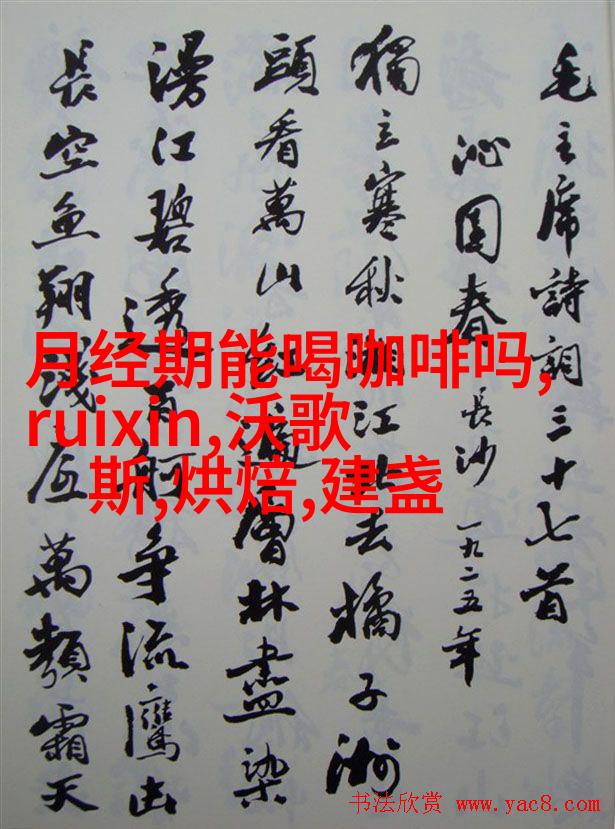 毛主席詩詞三十七首
沁園春 長沙 一九二五年
獨立寒秋湘江北去橘子洲
頭看萬山紅遍層林盡染
漫江碧透百舸爭流鷹击
長空魚翔淺底萬類霜天
月经期能喝咖啡吗,
ruixin,沃歌
斯,烘焙,建盏
书法欣赏 www.yac8.com